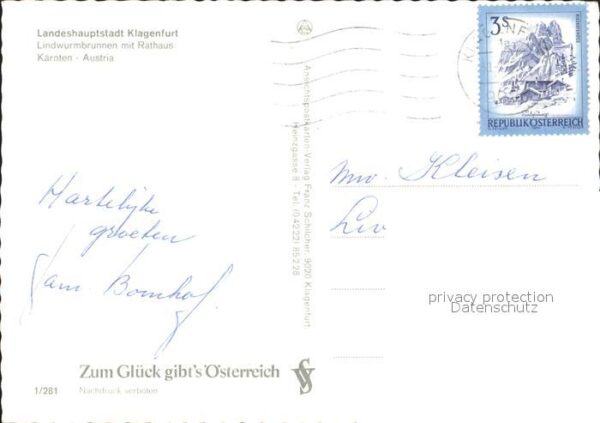 Landeshauptstadt Klagenfurt
Lindwurmbrunnen mit Rathaus
Kärnten - Austria
3S
REPUBLIK ÖSTERREICH
Ansichtspostkarten-Verlag Franz Schilcher 9020 Klagenfurt
Heinzgasse 8 - Tel. (04222) 85 2 28
Hartelijke
groeten
Fam. Bomhof.
Mw. Kleisen
privacy protection
Datenschutz
Zum Glück gibt's Österreich
1/281
Nachdruck verboten